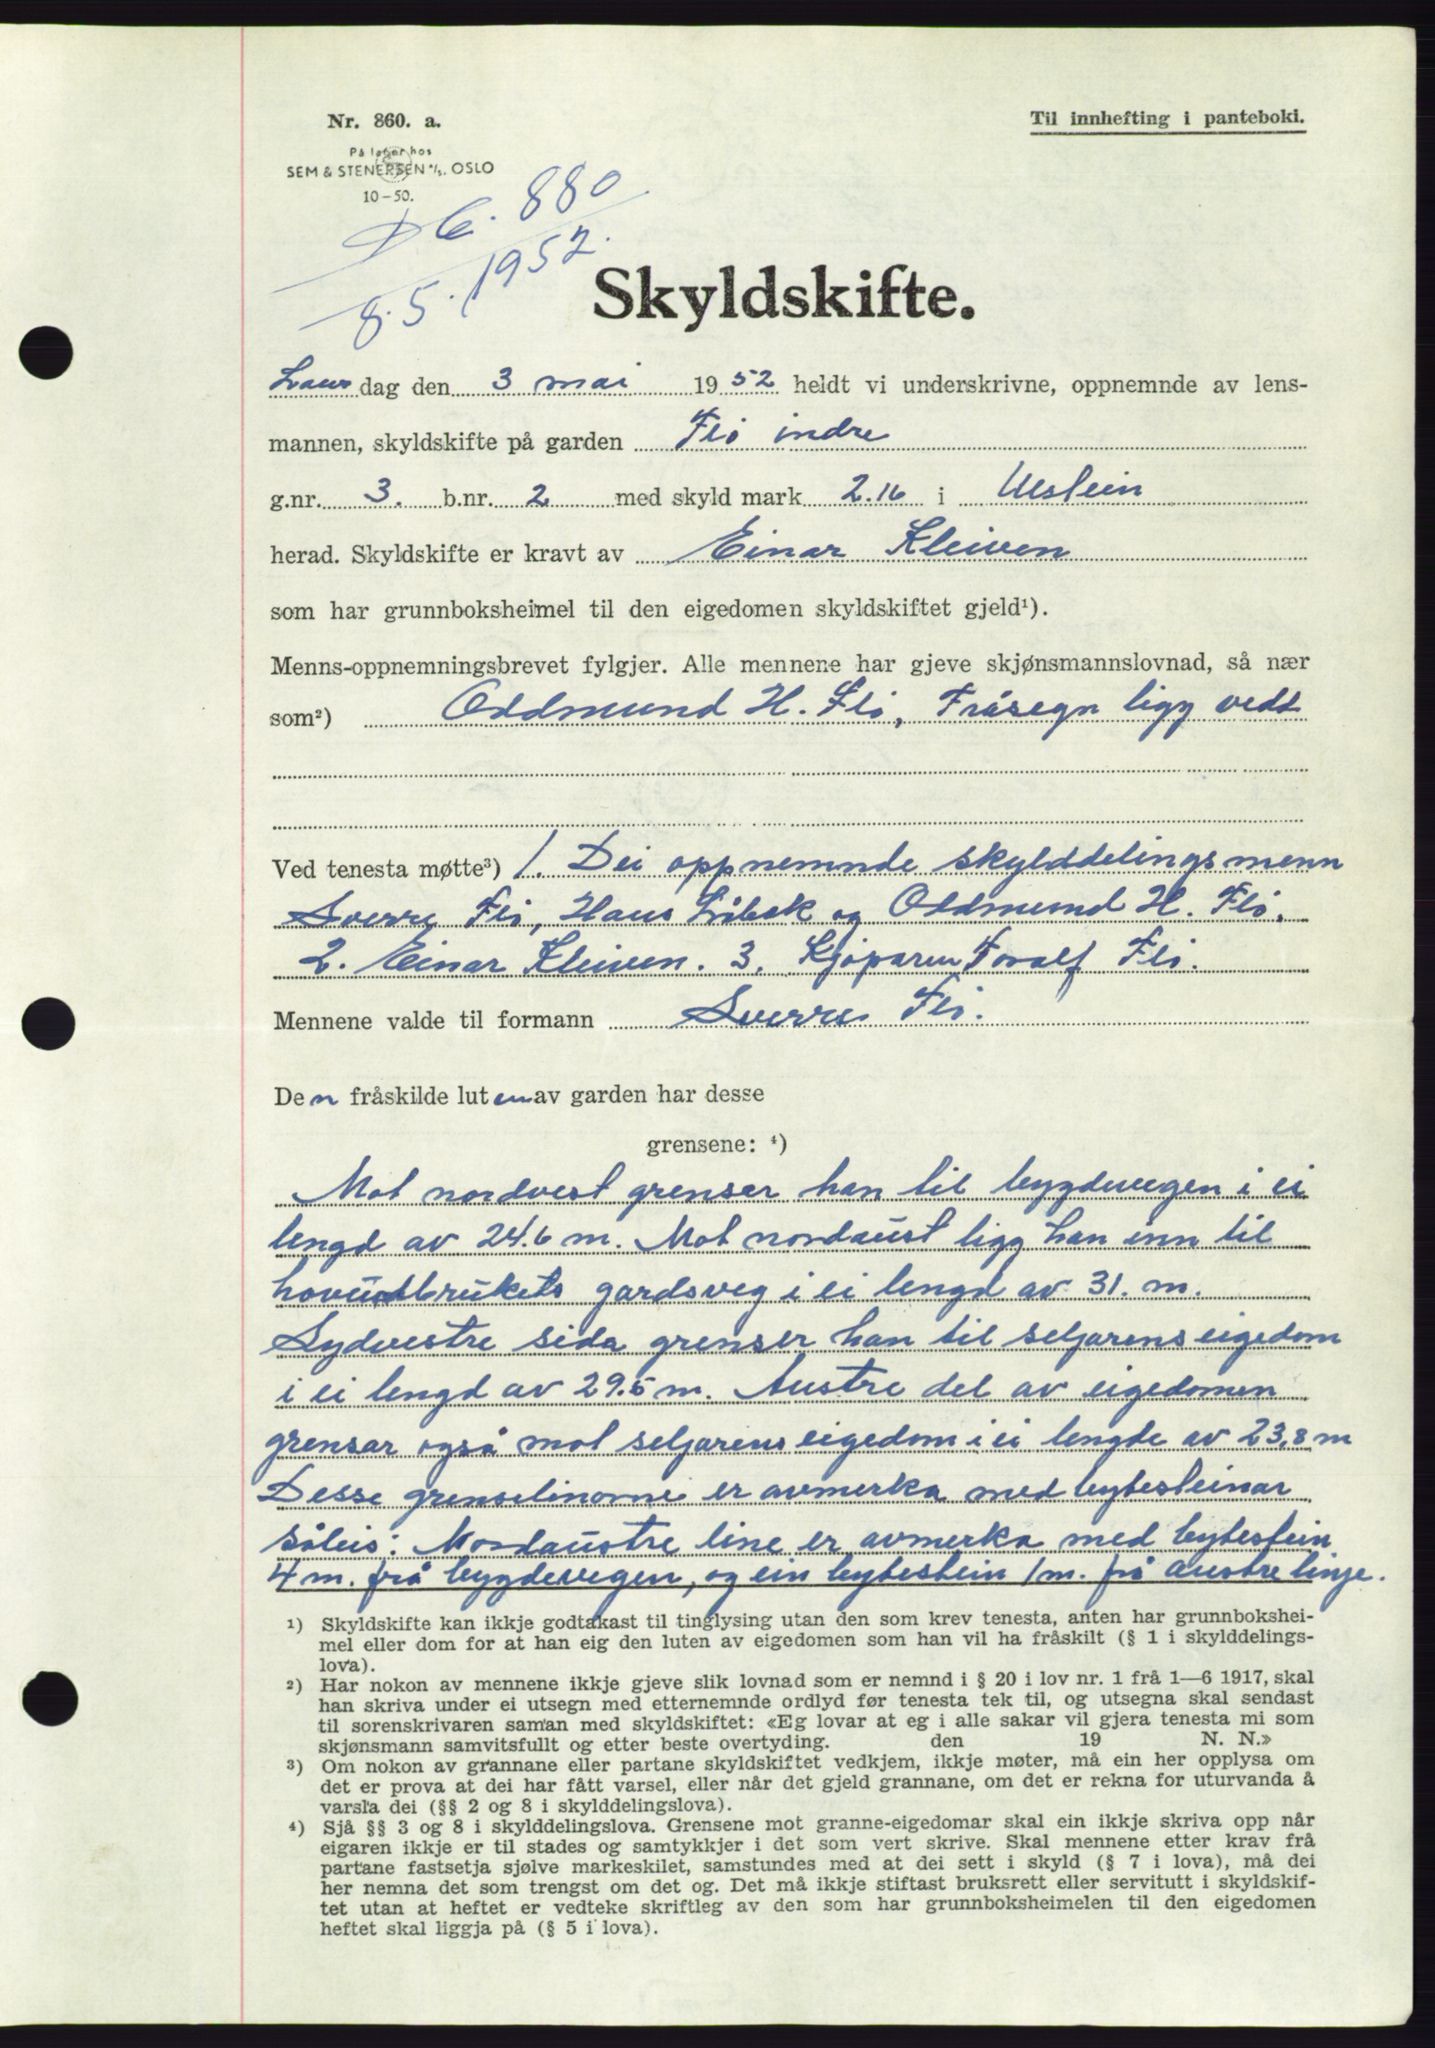 Nr. 860. a.
Til innhefting i panteboki.
På lager hos
SEM & STENERSEN A/S. OSLO
10-50.
880
8.5. 1952.
Skyldskifte.
Laur dag den 3 mai 1952 heldt vi underskrivne, oppnemnde av lens-
mannen, skyldskifte på garden Flø indre
g.nr. 3. b.nr. 2 med skyld mark 2.16 i Ulstein
herad. Skyldskifte er kravt av Einar Kleiven
som har grunnboksheimel til den eigedomen skyldskiftet gjeld¹).
Menns-oppnemningsbrevet fylgjer. Alle mennene har gjeve skjønsmannslovnad, så nær
som²) Oddmund H. Flø, Fråsegn ligg vedt
Ved tenesta møtte³) 1. Dei oppnemnde skylddelingsmenn
Sverre Flø, Hans Løbak og Oddmund H. Flø.
2. Einar Kleiven. 3. Kjøparen Toralf Flø.
Mennene valde til formann Sverre Flø.
Den fråskilde luten av garden har desse
grensene: ⁴)
Mot nordvest grenser han til bygdevegen i ei
lengd av 24.6 m. Mot nordaust ligg han inn til
hovudbrukets gardsveg i ei lengd av 31. m.
Sydvestre sida grenser han til seljarens eigedom
i ei lengd av 29.5 m. Austre del av eigedomen
grensar også mot seljarens eigedom i ei lengde av 23,8 m
Desse grenselinorne er avmerka med bytesteinar
såleis: Nordaustre line er avmerka med bytestein
4 m. frå bygdevegen, og ein bytestein 1 m. frå austre linje.
¹) Skyldskifte kan ikkje godtakast til tinglysing utan den som krev tenesta, anten har grunnbokshei-
mel eller dom for at han eig den luten av eigedomen som han vil ha fråskilt (§ 1 i skylddelings-
lova).
²) Har nokon av mennene ikkje gjeve slik lovnad som er nemnd i § 20 i lov nr. 1 frå 1—6 1917, skal
han skriva under ei utsegn med etternemnde ordlyd før tenesta tek til, og utsegna skal sendast
til sorenskrivaren saman med skyldskiftet: «Eg lovar at eg i alle sakar vil gjera tenesta mi som
skjønsmann samvitsfullt og etter beste overtyding. den 19 N. N.»
³) Om nokon av grannane eller partane skyldskiftet vedkjem, ikkje møter, må ein her opplysa om
det er prova at dei har fått varsel, eller når det gjeld grannane, om det er rekna for uturvanda å
varsla dei (§§ 2 og 8 i skylddelingslova).
⁴) Sjå §§ 3 og 8 i skylddelingslova. Grensene mot granne-eigedomar skal ein ikkje skriva opp når
eigaren ikkje er til stades og samtykkjer i det som vert skrive. Skal mennene etter krav frå
partane fastsetja sjølve markeskilet, samstundes med at dei sett i skyld (§ 7 i lova), må dei
her nemna det som trengst om det og. Det må ikkje stiftast bruksrett eller servitutt i skyldskif-
tet utan at heftet er vedteke skriftleg av den som har grunnboksheimelen til den eigedomen
heftet skal liggja på (§ 5 i lova).